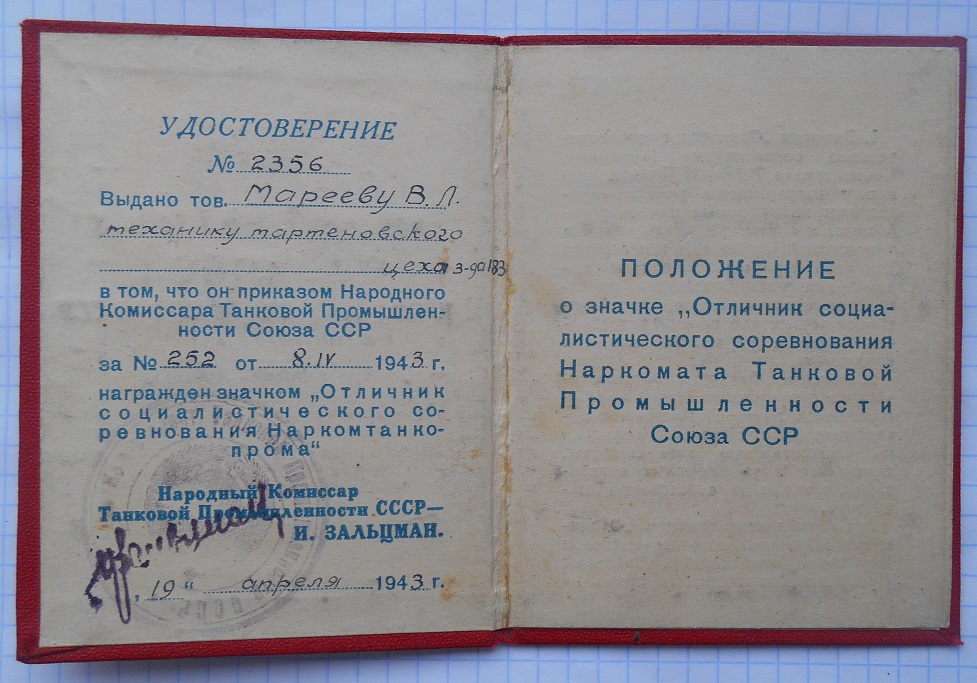 УДОСТОВЕРЕНИЕ
№ 2356
Выдано тов. Марееву В. Л.
механику мартеновского
цеха з-да 183
в том, что он приказом Народного
Комиссара Танковой Промышлен-
ности Союза ССР
за № 252 от 8.IV 1943 г.
награжден значком „Отличник
социалистического со-
ревнования Наркомтанко-
прома“
Народный Комиссар
Танковой Промышленности СССР—
И. ЗАЛЬЦМАН.
„ 19 “ апреля 1943 г.
ПОЛОЖЕНИЕ
о значке „Отличник социа-
листического соревнования
Наркомата Танковой
Промышленности
Союза ССР